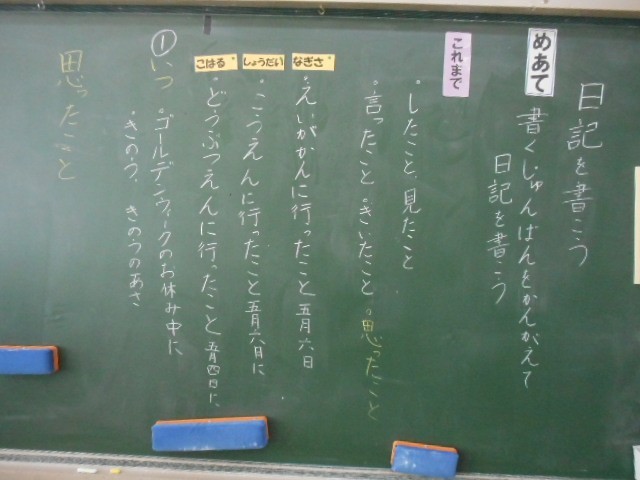 日記を書こう
めあて
書くじゅんばんをかんがえて
日記を書こう
これまで
・したこと、見たこと
・言ったこと・きいたこと・思ったこと
なぎさ
・えいがかんに行ったこと 五月六日
しょうだい
・こうえんに行ったこと 五月六日に
こはる
・どうぶつえんに行ったこと 五月四日に
①いつ
・ゴールデンウィークのお休み中に
・きのう、きのうのあさ
思ったこと